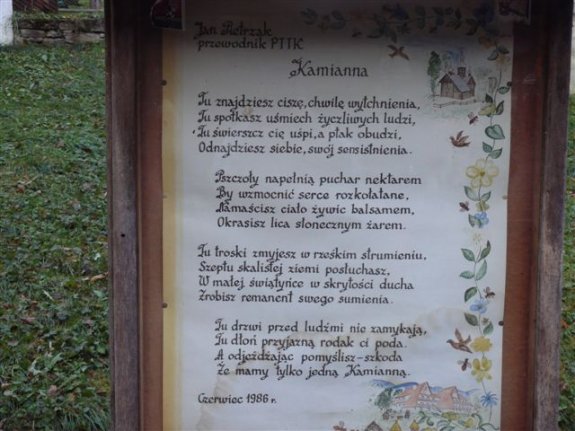 Jan Pietrzak
przewodnik PTTK
Kamianna
Tu znajdziesz ciszę, chwilę wytchnienia,
Tu spotkasz uśmiech życzliwych ludzi,
Tu świerszcz cię uśpi, a ptak obudzi,
Odnajdziesz siebie, swój sens istnienia.
Pszczoły napełnią puchar nektarem
By wzmocnić serce rozkołatane,
Namaścisz ciało żywic balsamem,
Okrasisz lica słonecznym żarem.
Tu troski zmyjesz w rześkim strumieniu,
Szeptu skalistej ziemi posłuchasz,
W małej świątyńce w skrytości ducha
Zrobisz remanent swego sumienia.
Tu drzwi przed ludźmi nie zamykają,
Tu dłoń przyjazną rodak ci poda.
A odjeżdżając pomyślisz-szkoda
Że mamy tylko jedną Kamianną.
Czerwiec 1986 r.